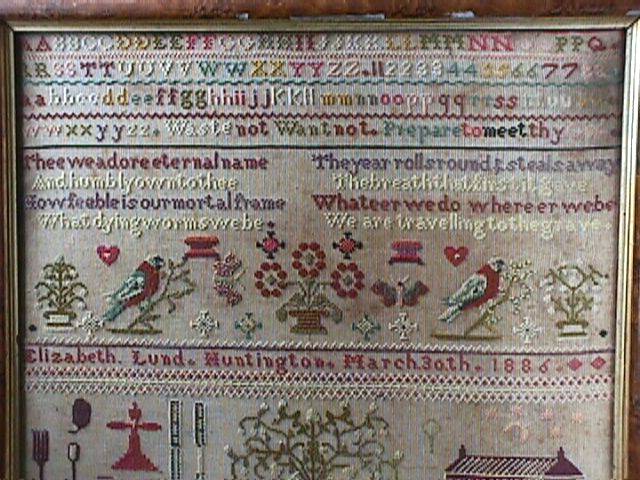 AABBCCDDEEFFGGHHIIJJKKLLMMNNO PPQ
RRSSTTUUVVWWXXYYZZ.11223344556677
aabbccddeeffgghhiijjkkllmmnnooppqqrrssttuu
wwxxyyzz. Waste not Want not. Prepare to meet thy
Thee we adore eternal name
And humbly own to thee
How feeble is our mortal frame
What dying worms we be
The year rolls round & steals away
The breath that first it gave
Whateer we do where er we be
We are travelling to the grave.
Elizabeth. Lund. Huntington. March 30th. 1886.